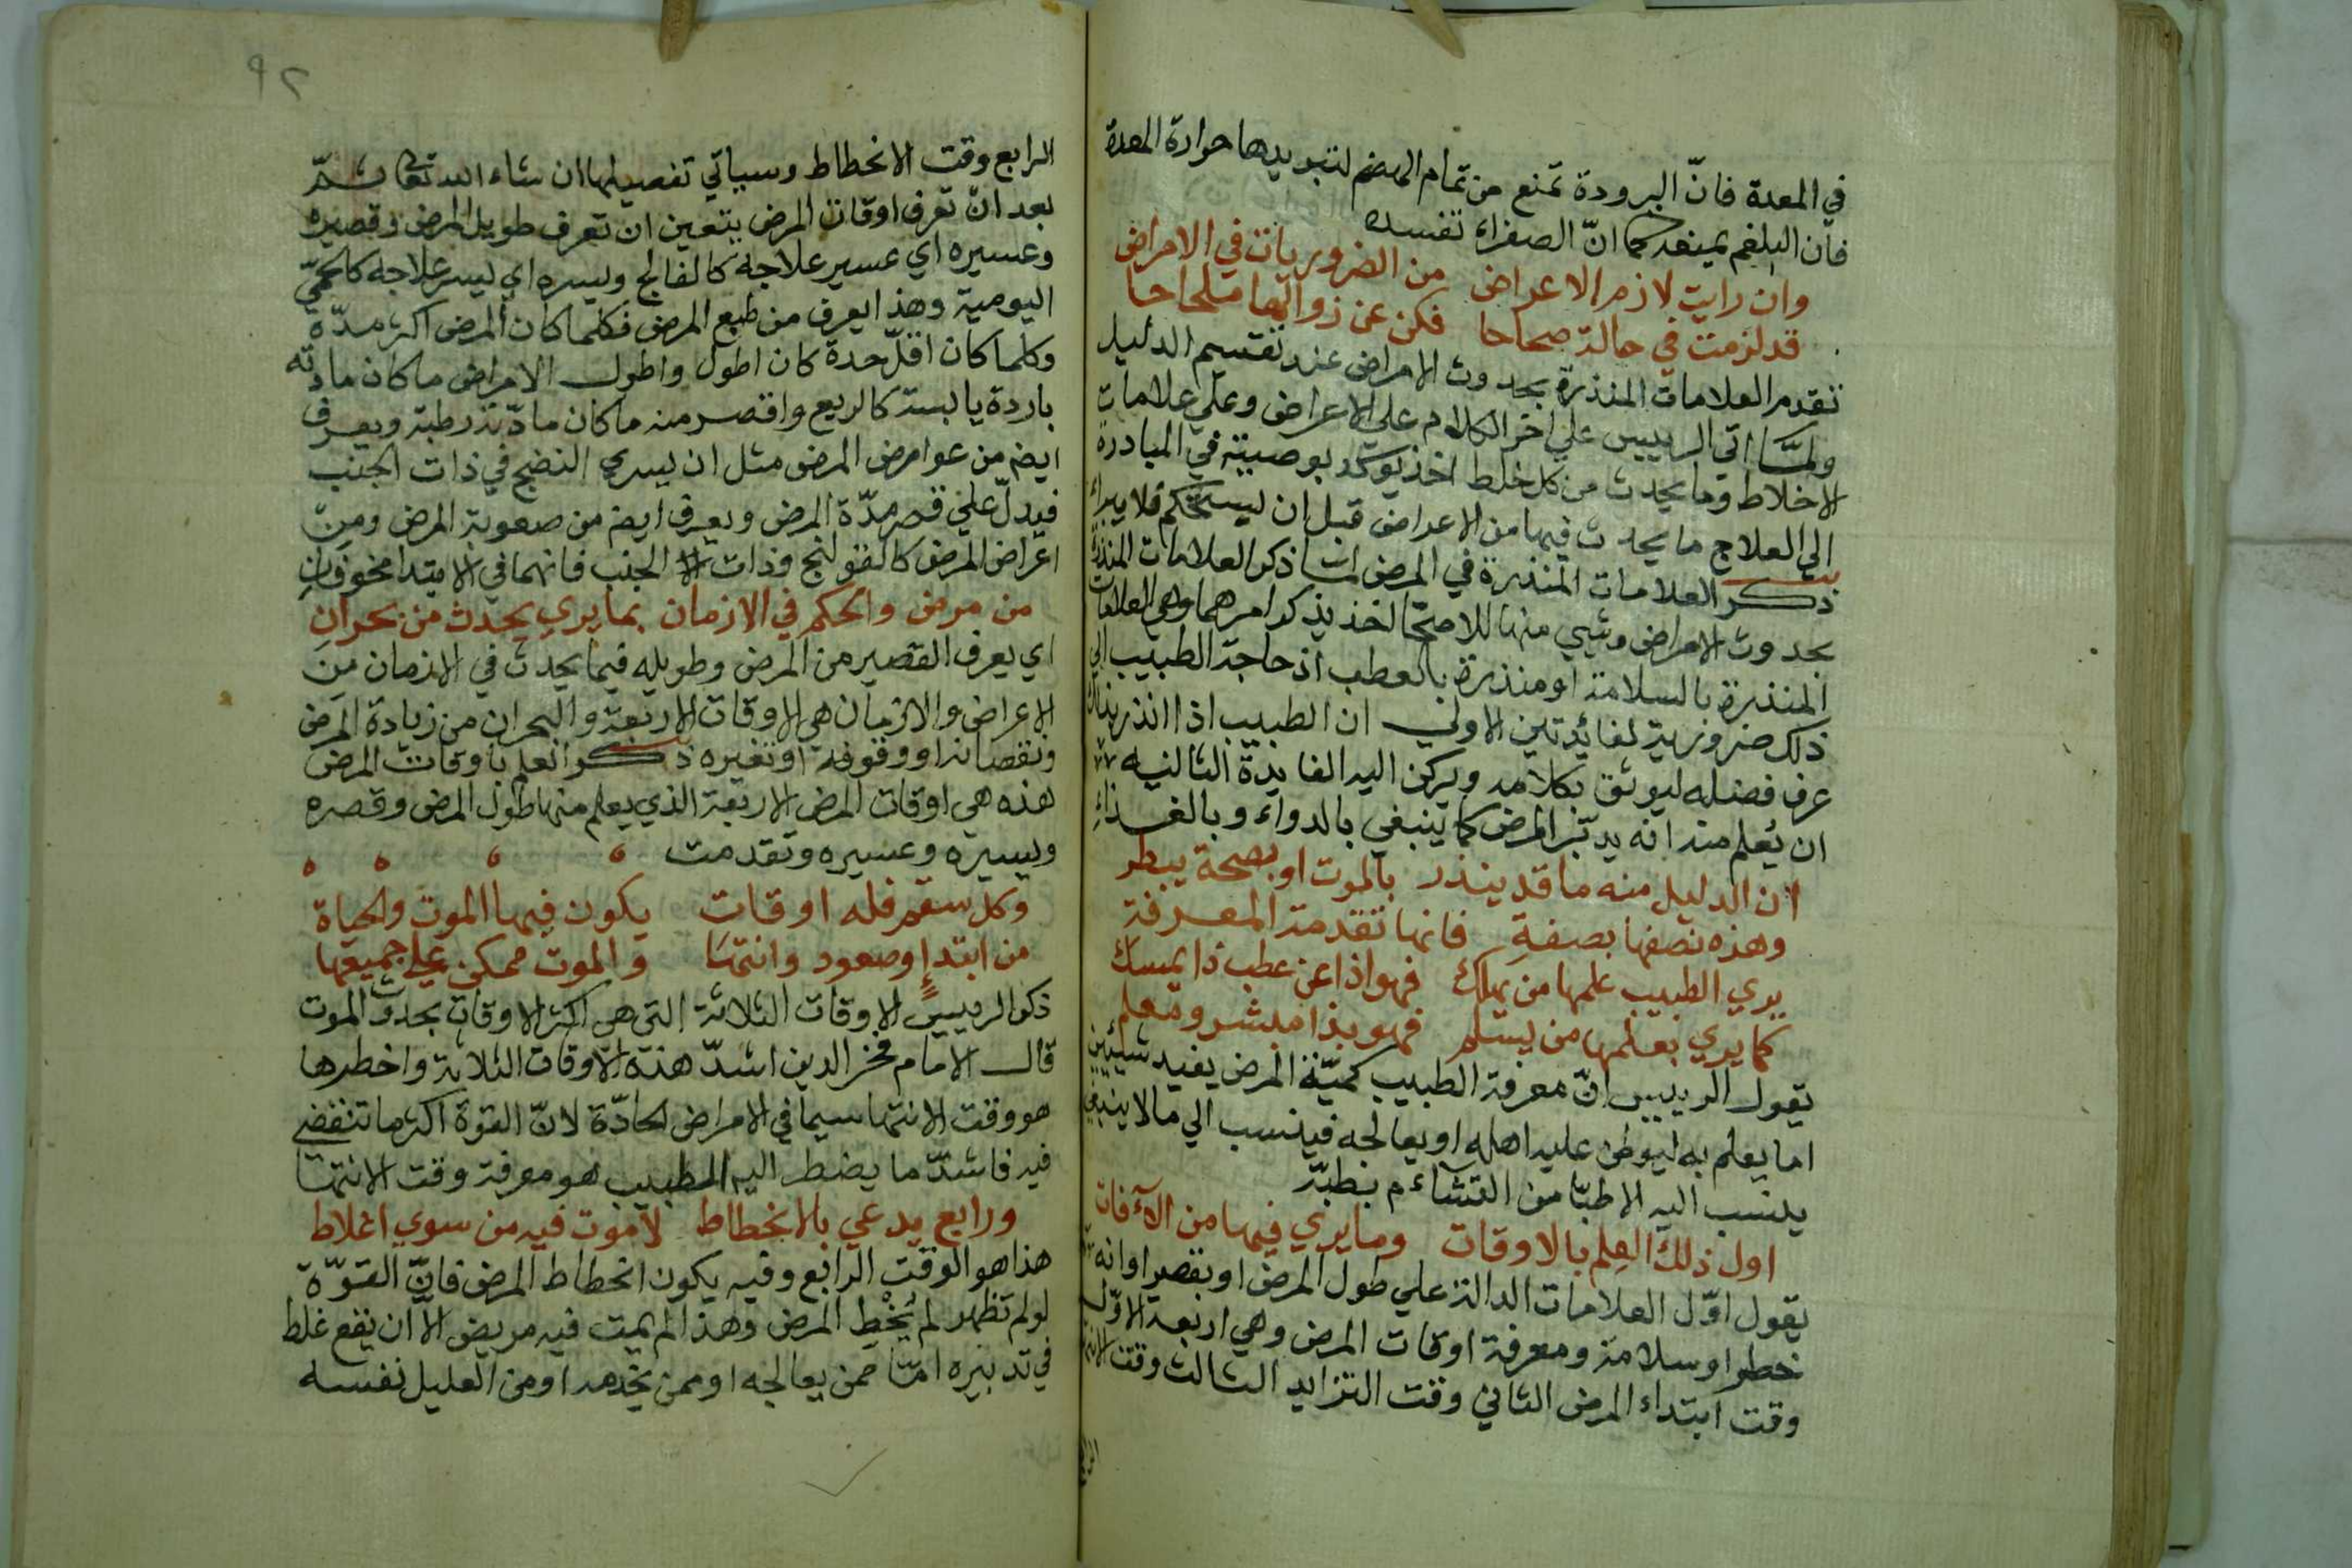 في المعدة فانّ البرودة تمنع من تمام الهضم لتبريدها حرارة المعدة
فان البلغم يمنعه كما انّ الصفراء تفسده
وان رايت لازم الاعراض من الضروريات في الامراض
قد لزمت في حالة صحاحا فكن عن زوالها ملحاحا
تقدم العلامات المنذرة بحدوث الامراض عند تقسيم الدليل
ولمّا اتى الرييس علي اخر الكلام علي الاعراض وعلي علامات
الاخلاط وما يحدث من كل خلط اخذ يوكد بوصيته في المبادرة
الي العلاج ما يحدث فيها من الاعراض قبل ان يستحكم فلا يبراء
ذكر العلامات المنذرة في المرض لما ذكر العلامات المنذرة
بحدوث الامراض وشيي منها للاصحّا اخذ يذكر امرهما وهي العلامات
المنذرة بالسلامة او منذرة بالعطب اذ حاجة الطبيب الي
ذلك ضرورية لفائدتين الاولي ان الطبيب اذا انذر بذلك
عرف فضله ليوثق بكلامه ويركن اليه الفايدة الثانيه
ان يُعلم منه انه يدبّر المرض كما ينبغي بالدواء وبالغذاءِ
ان الدليل منه ما قد ينذر بالموت او بصحة يبطر
وهذه نصفها بصفةِ فانها تقدمة المعرفة
يري الطبيب علمها من يهلك فهو اذا عن عطب ذا يمسك
كما يري بعلمها من يسلم فهو بذا مبشر ومعلم
يقول الرييس انّ معرفة الطبيب كميّة المرض يفيد شيئين
اما يعلم به ليوطئ عليه اهله او يعالجه فينسب الي ما لا ينبغي
ينسب اليه الاطبّا من التشاءم بطبّه
اول ذلك العلم بالاوقات وما يري فيها من الآفات
يقول اوّل العلامات الدالة علي طول المرض او بقصر او انه
خطر او سلامة ومعرفة اوقات المرض وهي اربعة الاوّل
وقت ابتداء المرض الثاني وقت التزايد الثالث وقت
٩٢
الرابع وقت الانحطاط وسياتي تفصيلها ان شاء الله تعا ثمّ
بعد انّ تعرف اوقات المرض يتعين ان تعرف طويل المرض وقصيره
وعسيره اي عسير علاجه كالفالج ويسره اي يسر علاجه كالحمّي
اليومية وهذا يعرف من طبع المرض فكلما كان المرض اكثر مدّة
وكلما كان اقلّ حدة كان اطول واطول الامراض ما كان مادته
باردة يابسة كالربع واقصر منه ما كان مادّته رطبة ويعرف
ايضم من عوامرض المرض مثل ان يسري النضج في ذات الجنب
فيدلّ علي قصر مدّة المرض ويعرف ايضم من صعوبة المرض ومن
اعراض المرض كالقولنج وذات الجنب فانهما في الابتدا مخوفان
من مرض والحكم في الازمان بما يري يحدث من بحران
اي يعرف القصير من المرض وطويله فيما يحدث في الازمان من
الاعراض والازمان هي الاوقات الاربعة والبحران من زيادة المرض
ونقصانه او وقوفه او تغيره ذكر العلم باوقات المرض
هذه هي اوقات المرض الاربعة الذي يعلم منها طول المرض وقصره
ويسيره وعسيره وتقدمت
وكل سقم فله اوقات يكون فيها الموت والحياة
من ابتداٍ وصعود وانتها والموت ممكن علي جميعها
ذكر الرييس الاوقات الثلاثة التي هي اكثر الاوقات بحدوث الموت
قال الامام فخر الدين اشدّ هذه الاوقات الثلاثة واخطرها
هو وقت الانتها سيما في الامراض الحادّة لانّ القوة اكثر ما تنقضي
فيه فاشدّ ما يضطر اليه الطبيب هو معرفة وقت الانتها
ورابع يدعي بالانحطاط لا موت فيه من سوي اغلاط
هذا هو الوقت الرابع وفيه يكون انحطاط المرض فانّ القوّة
لو لم تظهر لم يُخْطِ المرض وهذا لم يمت فيه مريض الّا ان يقع غلط
في تدبيره امّا ممن يعالجه او ممن يخدمه او من العليل نفسه